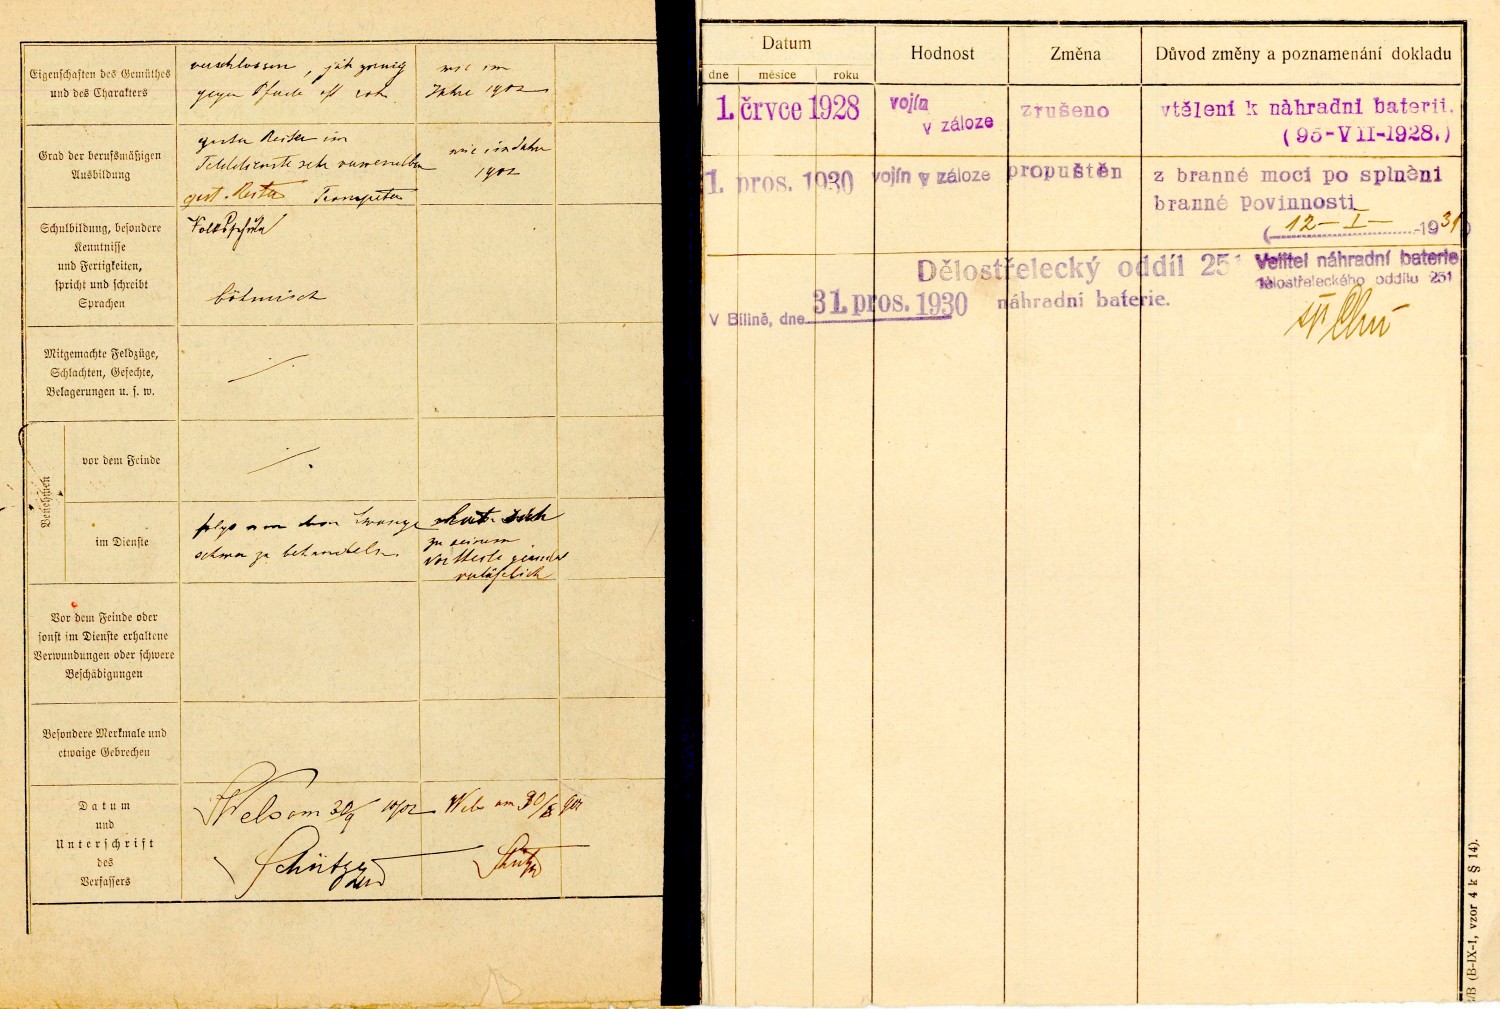 Eigenschaften des Gemüthes
und des Charakters
verschlossen, jäh zornig
gegen Pferde oft roh.
wie im
Jahre 1902
Grad der berufsmäßigen
Ausbildung
guter Reiter im
Felddienste sehr
gest. Reiter Trompeter
wie im Jahre
1902
Schulbildung, besondere
Kenntnisse
und Fertigkeiten,
spricht und schreibt
Sprachen
Volksschule
böhmisch
Mitgemachte Feldzüge,
Schlachten, Gefechte,
Belagerungen u. s. w.
Benehmen
vor dem Feinde
im Dienste
folgt nur dem Zwange
schwer zu behandeln
hat sich
zu seinem
Vortheile geändert
Vor dem Feinde oder
sonst im Dienste erhaltene
Verwundungen oder schwere
Beschädigungen
Besondere Merkmale und
etwaige Gebrechen
Datum
und
Unterschrift
des
Verfassers
Wels am 30/9 1902
Wels am
Schütz
Datum
dne
měsíce
roku
Hodnost
Změna
Důvod změny a poznamenání dokladu
1. črvce 1928
vojín
v záloze
zrušeno
vtělení k náhradní baterii.
(95-VII-1928.)
1. pros. 1930
vojín v záloze
propuštěn
z branné moci po splnění
branné povinnosti
(12-I-1931)
Dělostřelecký oddíl 251
náhradní baterie.
V Bílině, dne 31. pros. 1930
Velitel náhradní baterie
dělostřeleckého oddílu 251
/B (B-IX-1, vzor 4 k § 14).